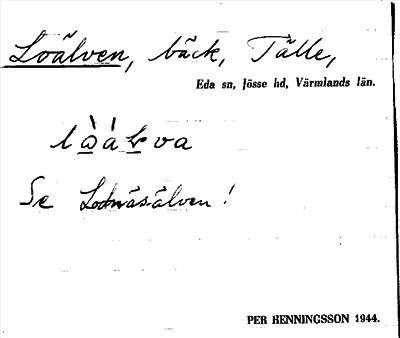 Loälven, bäck, Tälle,
Eda sn, Jösse hd, Värmlands län.
Se Lodnäsälven!
PER HENNINGSSON 1944.